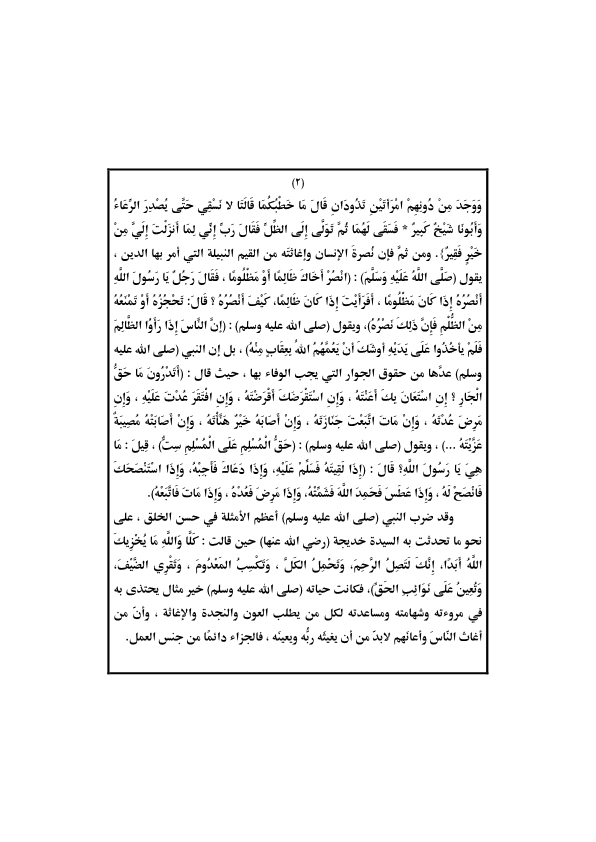 (٢)
وَوَجَدَ مِنْ دُونِهِمْ امْرَأَتَيْنِ تَذُودَانِ قَالَ مَا خَطْبُكُمَا قَالَتَا لا نَسْقِي حَتَّى يُصْدِرَ الرِّعَاءُ
وَأَبُونَا شَيْخٌ كَبِيرٌ * فَسَقَى لَهُمَا ثُمَّ تَوَلَّى إِلَى الظِّلِّ فَقَالَ رَبِّ إِنِّي لِمَا أَنزَلْتَ إِلَيَّ مِنْ
خَيْرٍ فَقِيرٌ}. ومن ثمَّ فإن نُصرةَ الإنسان وإغاثته من القيم النبيلة التي أمر بها الدين ،
يقول (صَلَّى اللهُ عَلَيْهِ وَسَلَّمَ) : (انْصُرْ أَخَاكَ ظَالِمًا أَوْ مَظْلُومًا ، فَقَالَ رَجُلٌ يَا رَسُولَ اللَّهِ
أَنْصُرُهُ إِذَا كَانَ مَظْلُومًا ، أَفَرَأَيْتَ إِذَا كَانَ ظَالِمًا، كَيْفَ أَنْصُرُهُ ؟ قَالَ: تَحْجُزُهُ أَوْ تَمْنَعُهُ
مِنْ الظُّلْمِ فَإِنَّ ذَلِكَ نَصْرُهُ)، ويقول (صلى الله عليه وسلم) : (إنَّ النَّاسَ إِذَا رَأَوُا الظَّالِمَ
فَلَمْ يأخُذُوا عَلَى يَدَيْهِ أوشَكَ أنْ يَعُمَّهُمُ اللهُ بِعِقَابٍ مِنْهُ) ، بل إن النبي (صلى الله عليه
وسلم) عدَّها من حقوق الجوار التي يجب الوفاء بها ، حيث قال : (أَتَدْرُونَ مَا حَقُّ
الْجَارِ ؟ إِنِ اسْتَعَانَ بِكَ أَعَنْتَهُ ، وَإِنِ اسْتَقْرَضَكَ أَقْرَضْتَهُ ، وَإِنِ افْتَقَرَ عُدْتَ عَلَيْهِ ، وَإِن
مَرِضَ عُدْتَهُ ، وَإِنْ مَاتَ اتَّبَعْتَ جَنَازَتَهُ ، وَإِنْ أَصَابَهُ خَيْرٌ هَنَّأْتَهُ ، وَإِنْ أَصَابَتْهُ مُصِيبَةٌ
عَزَّيْتَهُ ...) ، ويقول (صلى الله عليه وسلم) : (حَقُّ الْمُسْلِمِ عَلَى الْمُسْلِمِ سِتٌّ) ، قِيلَ : مَا
هِيَ يَا رَسُولَ اللَّهِ؟ قَالَ : (إِذَا لَقِيتَهُ فَسَلِّمْ عَلَيْهِ، وَإِذَا دَعَاكَ فَأَجِبْهُ، وَإِذَا اسْتَنْصَحَكَ
فَانْصَحْ لَهُ ، وَإِذَا عَطَسَ فَحَمِدَ اللَّهَ فَشَمِّتْهُ، وَإِذَا مَرِضَ فَعُدْهُ ، وَإِذَا مَاتَ فَاتَّبِعْهُ).
وقد ضرب النبي (صلى الله عليه وسلم) أعظم الأمثلة في حسن الخلق ، على
نحو ما تحدثت به السيدة خديجة (رضي الله عنها) حين قالت : كَلَّا وَاللَّهِ مَا يُخْزِيكَ
اللَّهُ أَبَدًا، إِنَّكَ لَتَصِلُ الرَّحِمَ، وَتَحْمِلُ الكَلَّ ، وَتَكْسِبُ المَعْدُومَ ، وَتَقْرِي الضَّيْفَ،
وَتُعِينُ عَلَى نَوَائِبِ الحَقِّ)، فكانت حياته (صلى الله عليه وسلم) خير مثال يحتذى به
في مروءته وشهامته ومساعدته لكل من يطلب العون والنجدة والإغاثة ، وأنّ من
أغاث النّاسَ وأعانَهم لابدَّ من أن يغيثَه ربُّه ويعينَه ، فالجزاء دائمًا من جنس العمل.